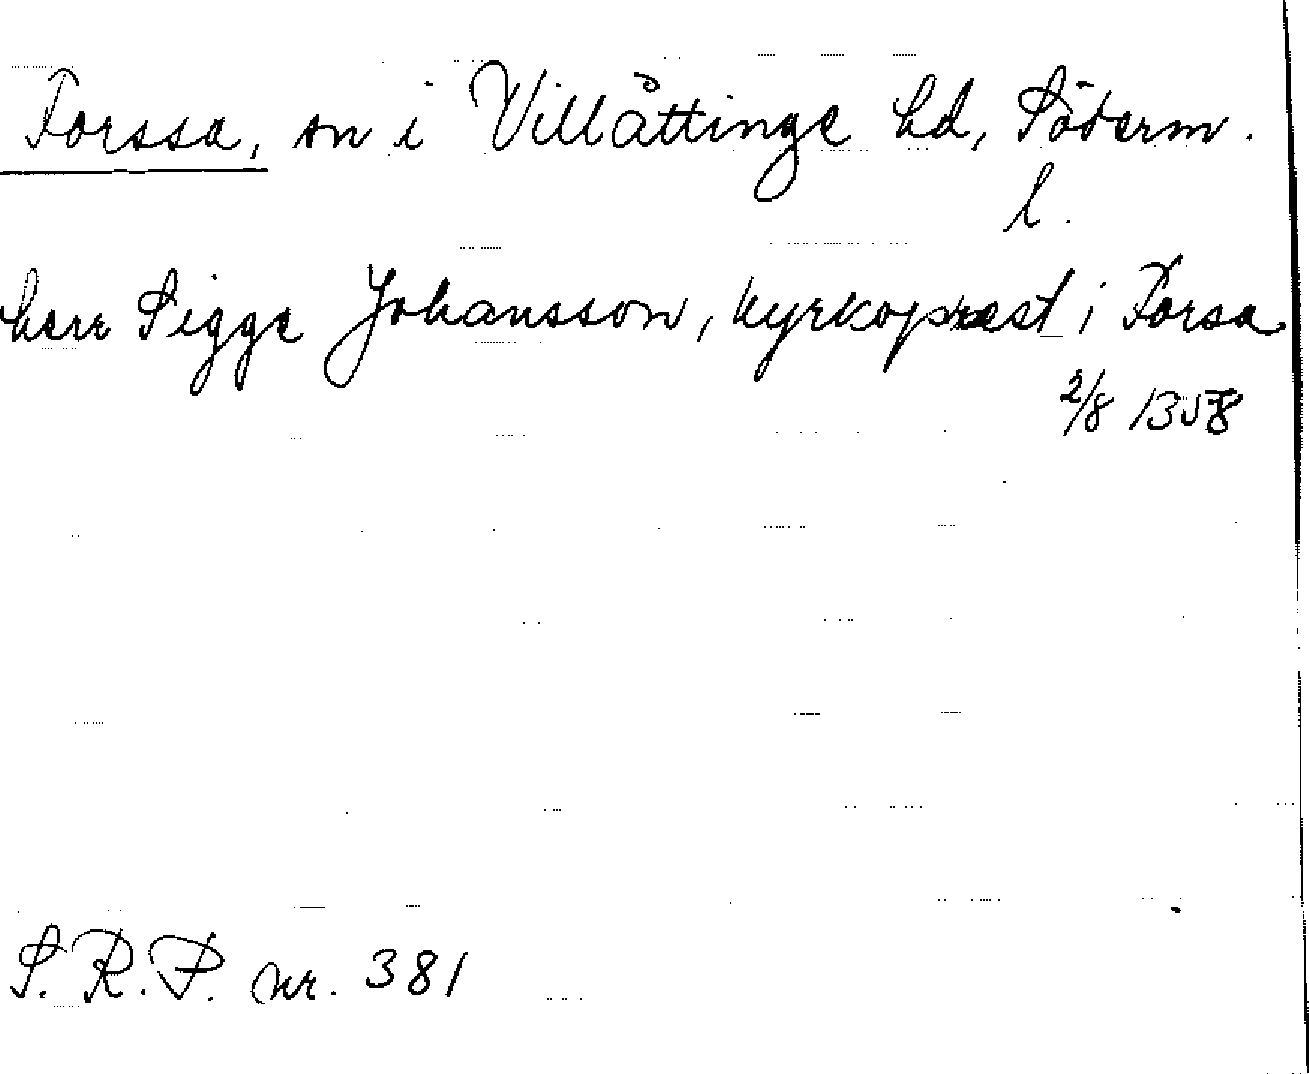 Forssa, sn i Villåttinge hd, Söderm.
l.
herr Sigge Johansson, kyrkoprest i Forsa
2/8 1358
S.R.P. nr. 381